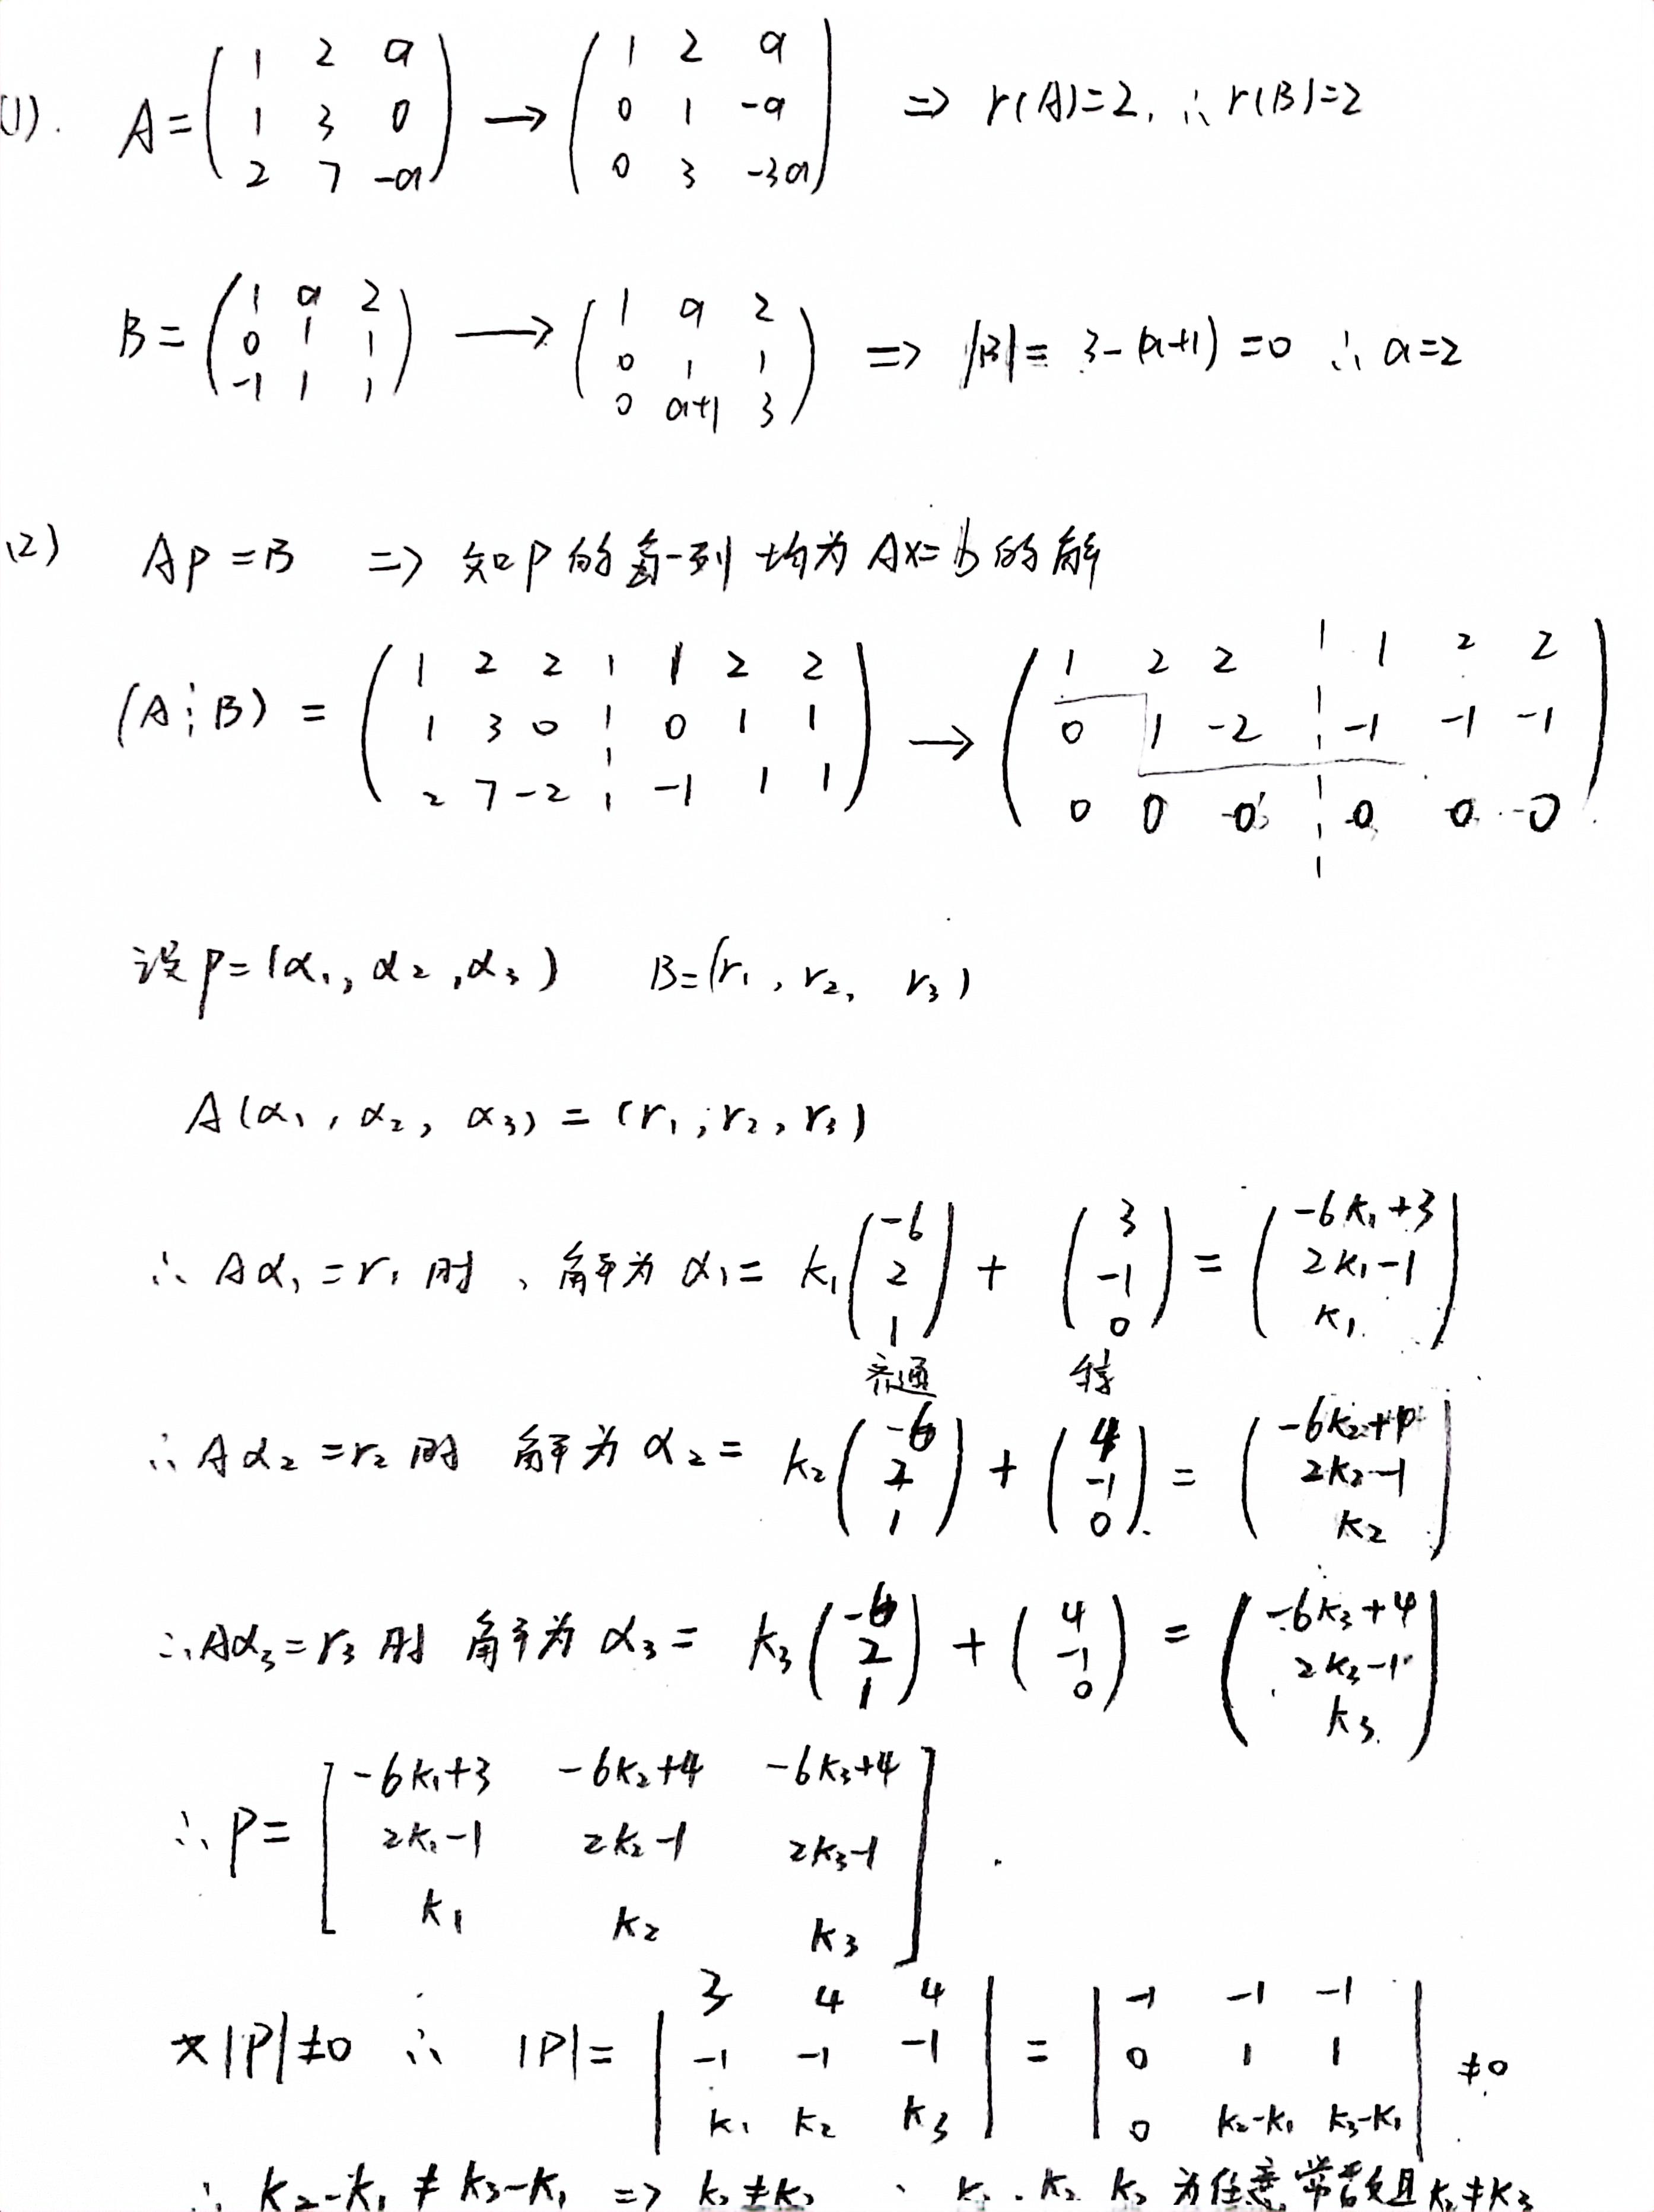 (1). A = ( 1 2 a ; 1 3 0 ; 2 7 -a ) → ( 1 2 a ; 0 1 -a ; 0 3 -3a ) => r(A)=2, ∴ r(B)=2
B = ( 1 a 2 ; 0 1 1 ; -1 1 1 ) → ( 1 a 2 ; 0 1 1 ; 0 a+1 3 ) => |B| = 3-(a+1) =0 ∴ a=2
(2) AP=B => 知P的每一列均为AX=b的解
(A⋮B) = ( 1 2 2 ¦ 1 2 2 ; 1 3 0 ¦ 0 1 1 ; 2 7 -2 ¦ -1 1 1 ) → ( 1 2 2 ¦ 1 2 2 ; 0 1 -2 ¦ -1 -1 -1 ; 0 0 0 ¦ 0 0 0 )
设P=(α₁, α₂, α₃) B=(r₁, r₂, r₃)
A(α₁, α₂, α₃) = (r₁, r₂, r₃)
∴ Aα₁=r₁时, 解为α₁= k₁( -6 ; 2 ; 1 ) + ( 3 ; -1 ; 0 ) = ( -6k₁+3 ; 2k₁-1 ; k₁ )
齐通 特
∴ Aα₂=r₂时 解为α₂= k₂( -6 ; 2 ; 1 ) + ( 4 ; -1 ; 0 ) = ( -6k₂+4 ; 2k₂-1 ; k₂ )
∴ Aα₃=r₃时 解为α₃= k₃( -6 ; 2 ; 1 ) + ( 4 ; -1 ; 0 ) = ( -6k₃+4 ; 2k₃-1 ; k₃ )
∴ P= [ -6k₁+3 -6k₂+4 -6k₃+4 ; 2k₁-1 2k₂-1 2k₃-1 ; k₁ k₂ k₃ ]
又|P|≠0 ∴ |P|= | 3 4 4 ; -1 -1 -1 ; k₁ k₂ k₃ | = | -1 -1 -1 ; 0 1 1 ; 0 k₂-k₁ k₃-k₁ | ≠0
∴ k₂-k₁ ≠ k₃-k₁ => k₂≠k₃ 、 k₁、k₂ k₃ 为任意常数且k₂≠k₃